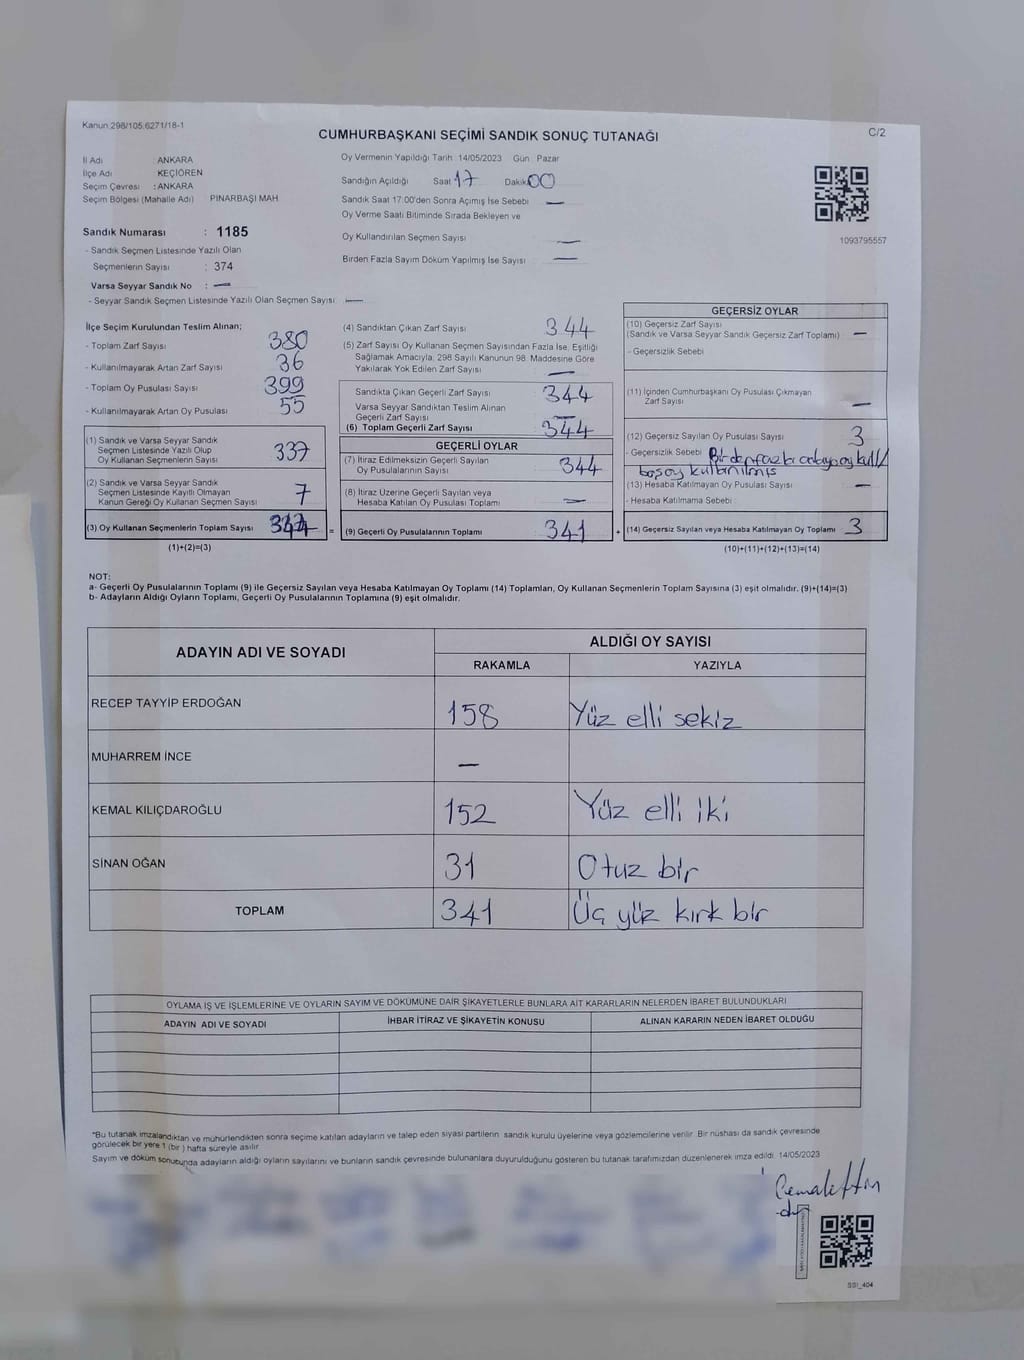 Kanun:298/105:6271/18-1
C/2
CUMHURBAŞKANI SEÇİMİ SANDIK SONUÇ TUTANAĞI
İl Adı : ANKARA
İlçe Adı KEÇİÖREN
Seçim Çevresi : ANKARA
Seçim Bölgesi (Mahalle Adı) PINARBAŞI MAH
Sandık Numarası : 1185
- Sandık Seçmen Listesinde Yazılı Olan
Seçmenlerin Sayısı : 374
Varsa Seyyar Sandık No : —
- Seyyar Sandık Seçmen Listesinde Yazılı Olan Seçmen Sayısı : —
Oy Vermenin Yapıldığı Tarih 14/05/2023 Gün Pazar
Sandığın Açıldığı Saat 17 Dakika 00
Sandık Saat 17:00'den Sonra Açılmış İse Sebebi —
Oy Verme Saati Bitiminde Sırada Bekleyen ve
Oy Kullandırılan Seçmen Sayısı —
Birden Fazla Sayım Döküm Yapılmış İse Sayısı —
1093795557
İlçe Seçim Kurulundan Teslim Alınan;
- Toplam Zarf Sayısı 380
- Kullanılmayarak Artan Zarf Sayısı 36
- Toplam Oy Pusulası Sayısı 399
- Kullanılmayarak Artan Oy Pusulası 55
(1) Sandık ve Varsa Seyyar Sandık
Seçmen Listesinde Yazılı Olup
Oy Kullanan Seçmenlerin Sayısı 337
(2) Sandık ve Varsa Seyyar Sandık
Seçmen Listesinde Kayıtlı Olmayan
Kanun Gereği Oy Kullanan Seçmen Sayısı 7
(3) Oy Kullanan Seçmenlerin Toplam Sayısı 344
(1)+(2)=(3)
(4) Sandıktan Çıkan Zarf Sayısı 344
(5) Zarf Sayısı Oy Kullanan Seçmen Sayısından Fazla İse, Eşitliği
Sağlamak Amacıyla, 298 Sayılı Kanunun 98. Maddesine Göre
Yakılarak Yok Edilen Zarf Sayısı —
Sandıkta Çıkan Geçerli Zarf Sayısı 344
Varsa Seyyar Sandıktan Teslim Alınan
Geçerli Zarf Sayısı —
(6) Toplam Geçerli Zarf Sayısı 344
GEÇERLİ OYLAR
(7) İtiraz Edilmeksizin Geçerli Sayılan
Oy Pusulalarının Sayısı 344
(8) İtiraz Üzerine Geçerli Sayılan veya
Hesaba Katılan Oy Pusulaları Toplamı —
= (9) Geçerli Oy Pusulalarının Toplamı 341 +
GEÇERSİZ OYLAR
(10) Geçersiz Zarf Sayısı
(Sandık ve Varsa Seyyar Sandık Geçersiz Zarf Toplamı) —
- Geçersizlik Sebebi
(11) İçinden Cumhurbaşkanı Oy Pusulası Çıkmayan
Zarf Sayısı —
(12) Geçersiz Sayılan Oy Pusulası Sayısı 3
- Geçersizlik Sebebi
boş oy kullanılmış
(13) Hesaba Katılmayan Oy Pusulası Sayısı —
- Hesaba Katılmama Sebebi :
(14) Geçersiz Sayılan veya Hesaba Katılmayan Oy Toplamı 3
(10)+(11)+(12)+(13)=(14)
NOT:
a- Geçerli Oy Pusulalarının Toplamı (9) ile Geçersiz Sayılan veya Hesaba Katılmayan Oy Toplamı (14) Toplamları, Oy Kullanan Seçmenlerin Toplam Sayısına (3) eşit olmalıdır. (9)+(14)=(3)
b- Adayların Aldığı Oyların Toplamı, Geçerli Oy Pusulalarının Toplamına (9) eşit olmalıdır.
ADAYIN ADI VE SOYADI
ALDIĞI OY SAYISI
RAKAMLA YAZIYLA
RECEP TAYYİP ERDOĞAN 158 Yüz elli sekiz
MUHARREM İNCE —
KEMAL KILIÇDAROĞLU 152 Yüz elli iki
SİNAN OĞAN 31 Otuz bir
TOPLAM 341 Üç yüz kırk bir
OYLAMA İŞ VE İŞLEMLERİNE VE OYLARIN SAYIM VE DÖKÜMÜNE DAİR ŞİKAYETLERLE BUNLARA AİT KARARLARIN NELERDEN İBARET BULUNDUKLARI
ADAYIN ADI VE SOYADI İHBAR İTİRAZ VE ŞİKAYETİN KONUSU ALINAN KARARIN NEDEN İBARET OLDUĞU
"Bu tutanak imzalandıktan ve mühürlendikten sonra seçime katılan adayların ve talep eden siyasi partilerin sandık kurulu üyelerine veya gözlemcilerine verilir. Bir nüshası da sandık çevresinde
görülecek bir yere 1 (bir) hafta süreyle asılır.
Sayım ve döküm sonucunda adayların aldığı oyların sayılarını ve bunların sandık çevresinde bulunanlara duyurulduğunu gösteren bu tutanak tarafımızdan düzenlenerek imza edildi. 14/05/2023
Cemalettin
SSI_404